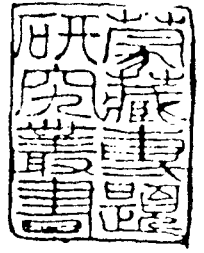 蒙藏專題
研究叢書